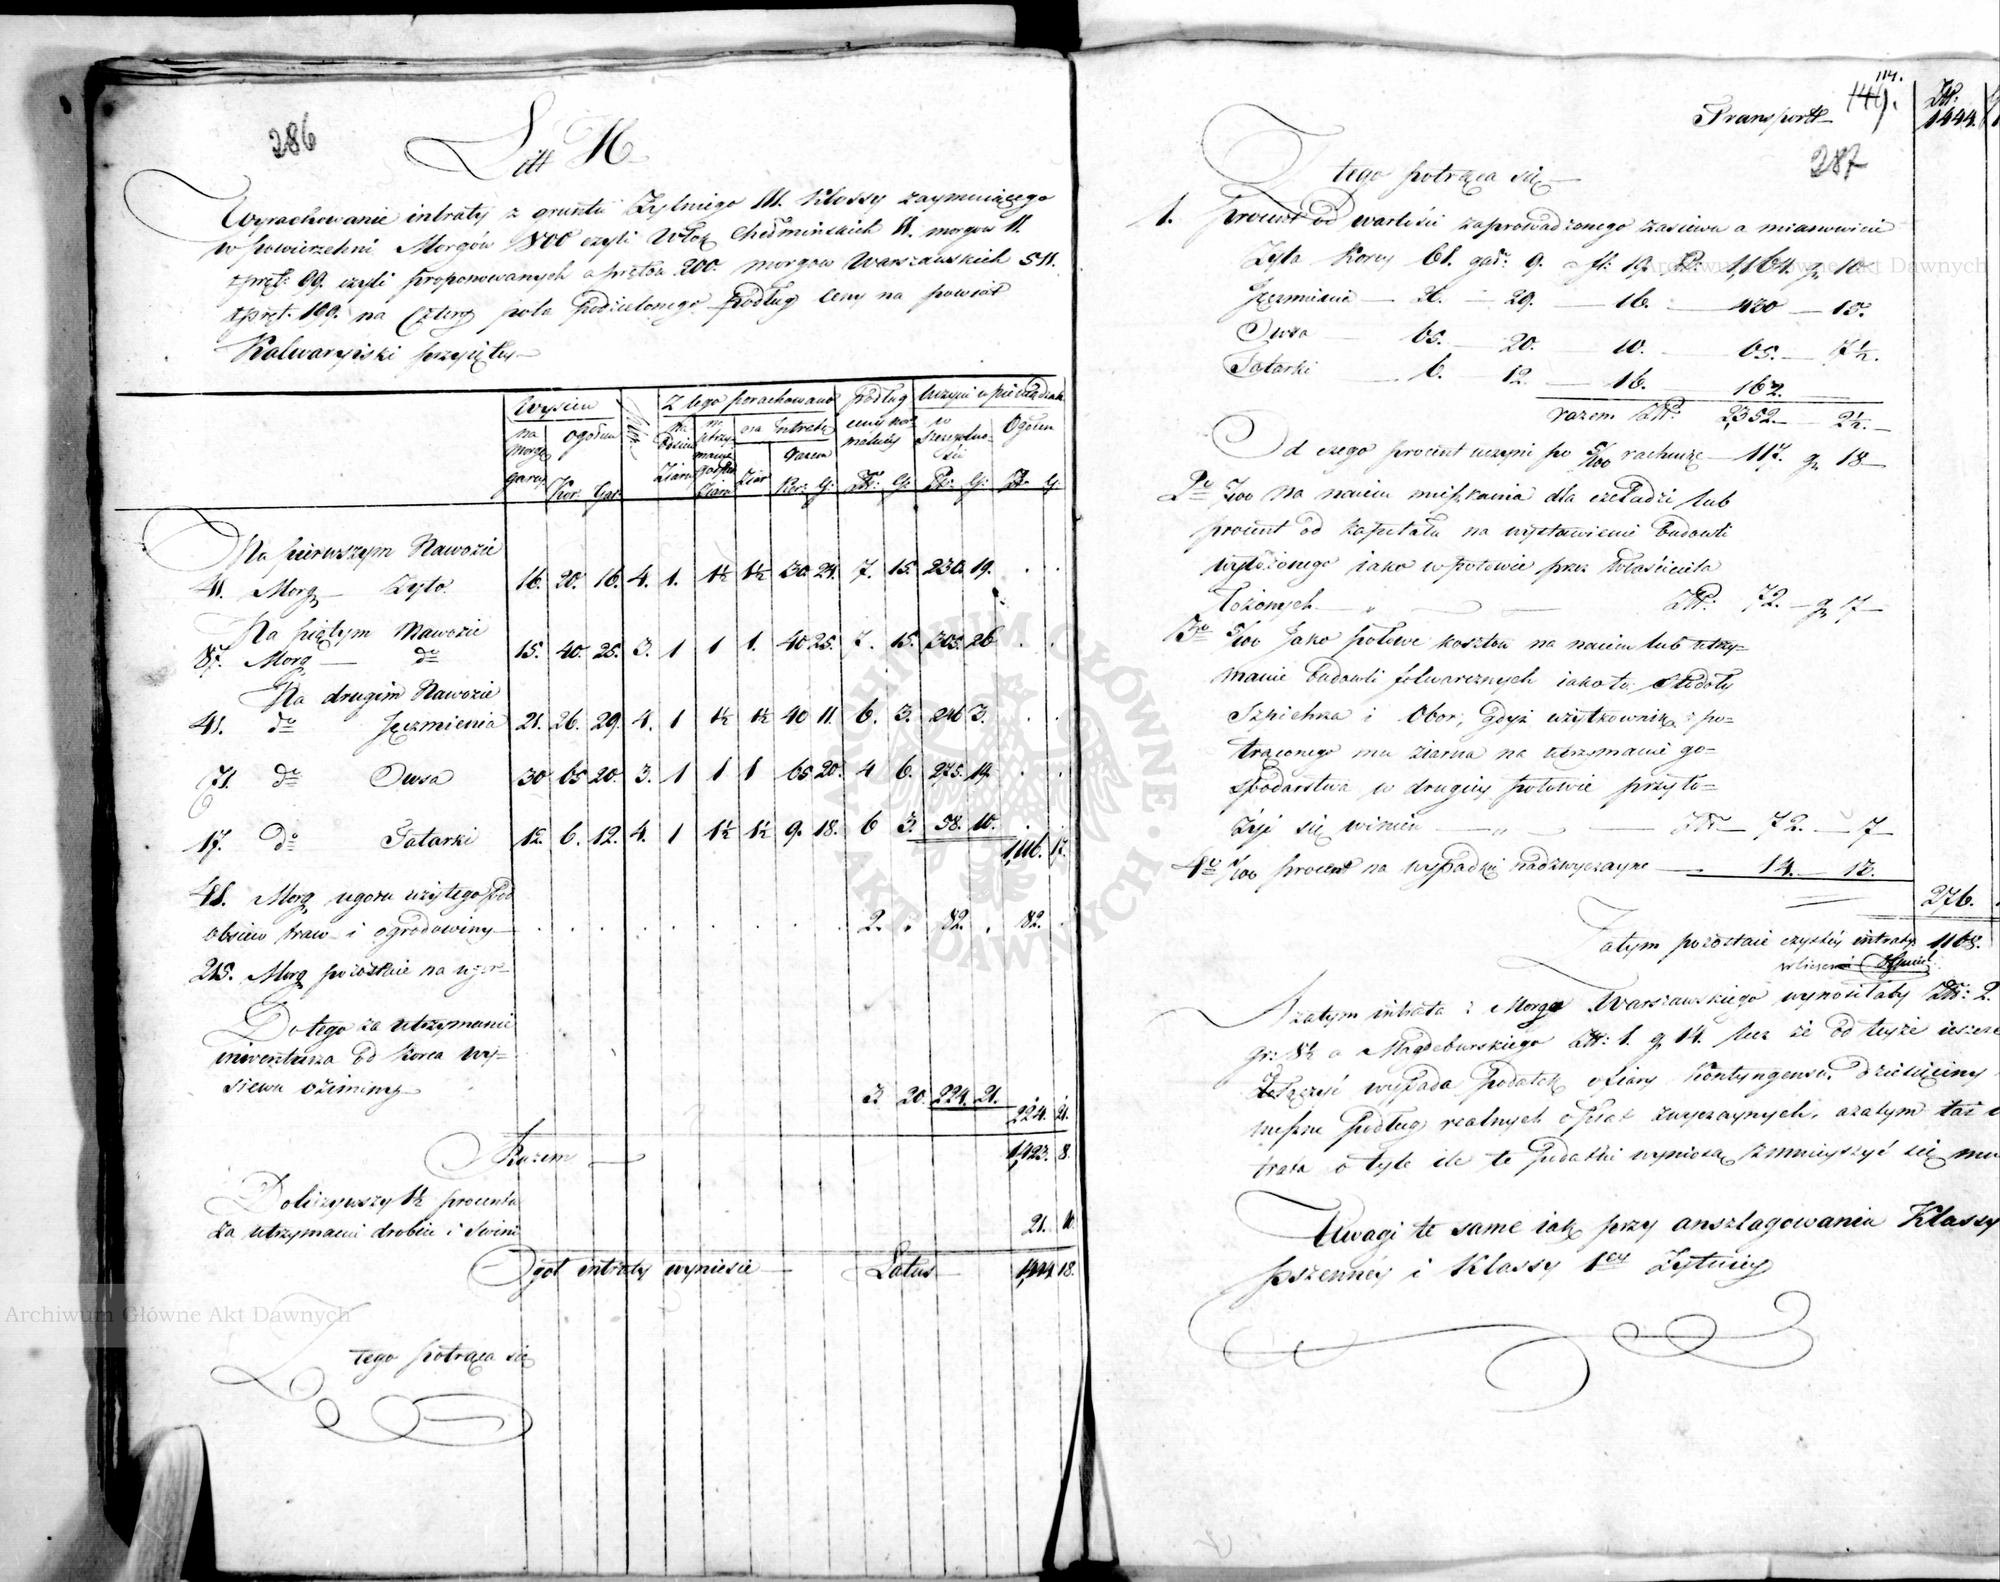 286
Litt H
Wyrachowanie intraty z gruntu Żytniego III. Klassy zaymuiącego
w powierzchni Morgów 500 czyli Włok Chełmińskich 11. morgów 11.
pręt: 99. czyli proponowanych a prętów 200. morgów Warszawskich 511.
pręt. 199. na Cztery pola podzielonego podług Ceny na powiat
Kalwaryiski przyiętey
Wysiew
Z tego porachowano
Podług
na Morgę
ogółem
na Intratę
Ogółem
garcy
Kor: Gar:
Ziarn
Ziarn
Ziar
Kor: G:
Zł: G:
Zł: G:
Zł: G:
Na pierwszym Nawozie
41. Morg Żyto 16. 20. 16. 4. 1. 1½ 1½ 30. 24. 7. 15. 230. 19.
Na piątym Nawozie
87. Morg do 15. 40. 25. 3. 1 1 1. 40 25. 7. 15. 305. 26
Na drugim Nawozie
41. do Jęczmienia 21. 26. 29. 4. 1 1½ 1½ 40 11. 6. 3. 246 3.
71. do Owsa 30 65 20. 3. 1 1 1 65 20. 4 6. 275. 19.
17. do Tatarki 12. 6. 12. 4. 1 1½ 1½ 9. 18. 6 3. 58. 10.
1,116. 17.
41. Morg ugoru użytego pod
obsiew traw i ogrodowiny 2. 82. 82.
215. Morg pozostaie na ugor
Do tego za utrzymanie
inwentarza od Korca wy-
siewu oziminy 3. 20. 224. 21.
224. 21.
Razem 1,423. 8.
Doliczywszy 1½ procentu
za utrzymanie drobiu i Swini 21. 10
Ogół intraty wyniesie Latus 1,444 18.
Z tego potrąca się
114.
149.
Transport Złt: 1444.
287
Z tego potrąca się
1. Procent od wartości zaprowadzonego zasiewu a mianowicie
Żyta Korcy 61. gar: 9. a fl: 19. Zł: 1,164. g. 10.
Jęczmienia 26. 29. 16. 430 15.
Owsa 65. 20. 10. 65. 7½.
Tatarki 6. 12. 16. 162.
razem Złt: 2,352. 2½.
Od czego procent uczyni po 5/100 rachuiąc 117. g. 18
2do 5/100 na naiem mieszkania dla czeladzi lub
procent od kapitału na wystawienie budowli
wyłożonego iako w połowie przez Właściciela
łożonych Złt: 72. g. 7
3tio 5/100 Jako połowę kosztów na naiem lub utrzy-
manie budowli folwarcznych iako to: Stodoły
Szpichrza i Obor, gdyż użytkownik z po-
trąconego mu ziarna na utrzymanie go-
spodarstwa w drugiey połowie przyło-
żyć się winien Złt 72. 7
4to 1/100 procent na wypadki nadzwyczayne 14. 12.
276.
Zatym pozostaie czystey intraty 1168.
A zatym intrata z Morga Warszawskiego wynosiłaby Złt: 2.
gr: 8½ a Magdeburskiego Złt: 1. g. 14. lecz że od teyże ieszcze
wypada podatek ofiary Kontyngensu, dziesięciny
podług realnych opłat zwyczaynych, a zatym taż in
trata o tyle ile te podatki wyniosą zmnieyszyć się mu
Uwagi te same iak przy anszlagowaniu Klassy
pszenney i Klassy 1ey Żytniey
Archiwum Główne Akt Dawnych
Archiwum Główne Akt Dawnych
ARCHIWUM GŁÓWNE AKT DAWNYCH